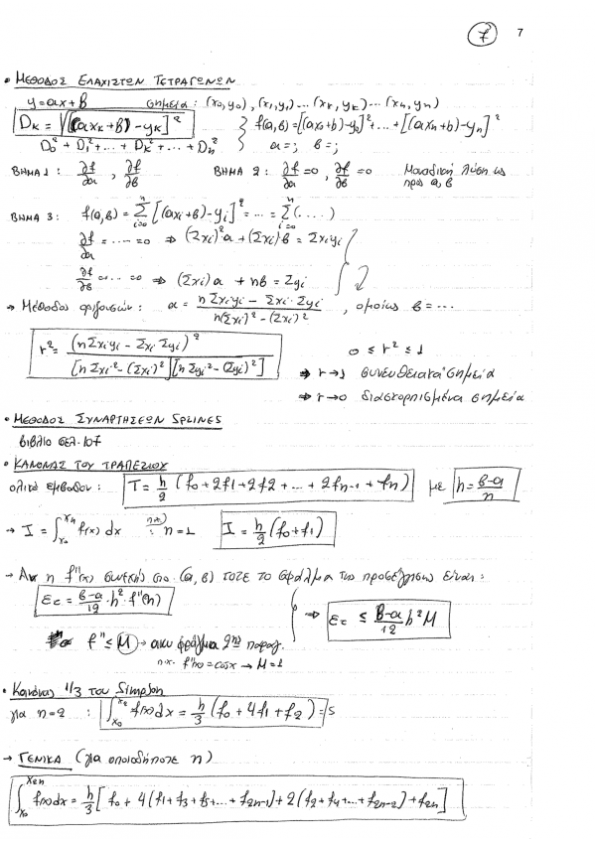 7 7
• ΜΕΘΟΔΟΣ ΕΛΑΧΙΣΤΩΝ ΤΕΤΡΑΓΩΝΩΝ
y=ax+β σημεία: (x₀,y₀), (x₁,y₁)... (xₖ,yₖ)... (xₙ,yₙ)
Dₖ = √[(axₖ+β)-yₖ]² } f(a,β)=[(ax₀+β)-y₀]²+...+[(axₙ+β)-yₙ]²
D₀²+D₁²+...+Dₖ²+...+Dₙ² a=; β=;
ΒΗΜΑ 1: ∂f/∂a, ∂f/∂β ΒΗΜΑ 2: ∂f/∂a=0, ∂f/∂β=0 Μοναδική λύση ως
προς a,β
ΒΗΜΑ 3: f(a,β) = Σⁿᵢ₌₀[(axᵢ+β)-yᵢ]² = ... = Σⁿᵢ₌₀(....)
∂f/∂a = .... =0 ⇒ (Σxᵢ)²a+(Σxᵢ)β = Σxᵢyᵢ
∂f/∂β = ... =0 ⇒ (Σxᵢ)a + nβ = Σyᵢ
→ Μέθοδος οριζουσών: a = (nΣxᵢyᵢ - Σxᵢ·Σyᵢ)/(n(Σxᵢ)²-(Σxᵢ)²), ομοίως β=...
r² = (nΣxᵢyᵢ - Σxᵢ·Σyᵢ)²/([nΣxᵢ²-(Σxᵢ)²][nΣyᵢ²-(Σyᵢ)²]) 0 ≤ r² ≤ 1
⇒ r→1 συνευθειακά σημεία
⇒ r→0 διασκορπισμένα σημεία
• ΜΕΘΟΔΟΣ ΣΥΝΑΡΤΗΣΕΩΝ SPLINES
βιβλίο σελ. 107
• ΚΑΝΟΝΑΣ ΤΟΥ ΤΡΑΠΕΖΙΟΥ
ολικό εμβαδόν: T = h/2 (f₀+2f₁+2f₂+...+2fₙ₋₁+fₙ) με h = (β-a)/n
→ I = ∫ₓ₀ˣⁿ f(x)dx n=1 I = h/2 (f₀+f₁)
→ Αν η f''(x) συνεχής στο (a,β) τοτε το σφάλμα της προσέγγισης είναι:
εc = (β-a)/12·h²·f''(η) ⇒ εc ≤ (β-a)/12 h²M
f'' ≤ M → ανω φράγμα 2ης παραγ.
π.χ. f''(x)=cosx → M=1
• Κανόνας 1/3 του Simpson
για n=2: ∫ₓ₀ˣ² f(x)dx = h/3 (f₀+4f₁+f₂)=S
→ ΓΕΝΙΚΑ (για οποιοδήποτε n)
∫ₓ₀ˣ²ⁿ f(x)dx = h/3 [f₀+4(f₁+f₃+f₅+...+f₂ₙ₋₁)+2(f₂+f₄+...+f₂ₙ₋₂)+f₂ₙ]